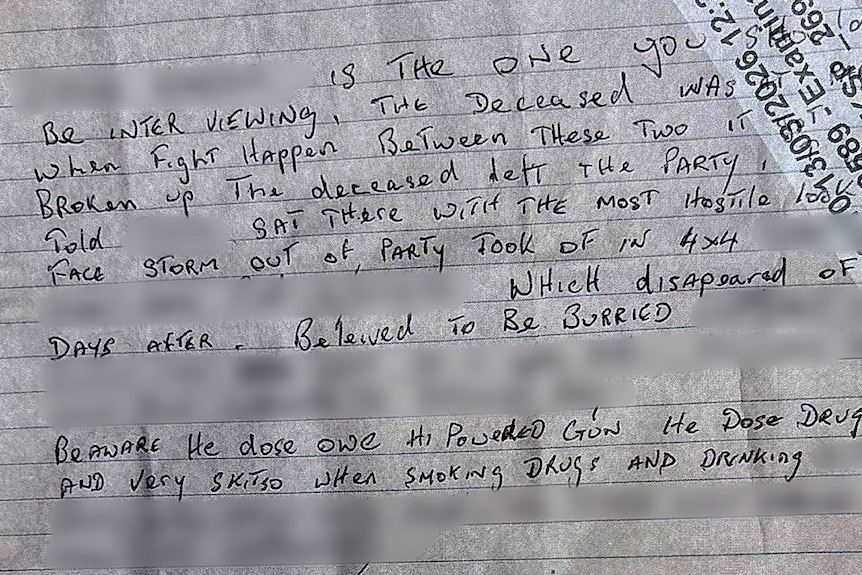 IS THE ONE YOU
BE INTER VIEWING, THE DECEASED WAS
WHEN FIGHT HAPPEN BETWEEN THESE TWO IT
BROKEN UP THE deceased left THE PARTY,
Told SAT THERE WITH THE MOST HOSTILE look
FACE STORM OUT OF, PARTY TOOK OF IN 4x4
WHICH disapeared OF
DAYS AFTER. Beleived TO BE BURRIED
BEAWARE He dose owe Hi POWERED GUN He DOSE DRUG
AND very SKITSO WHEN SMOKING DRUGS AND DRINKING
13/03/2026 12: